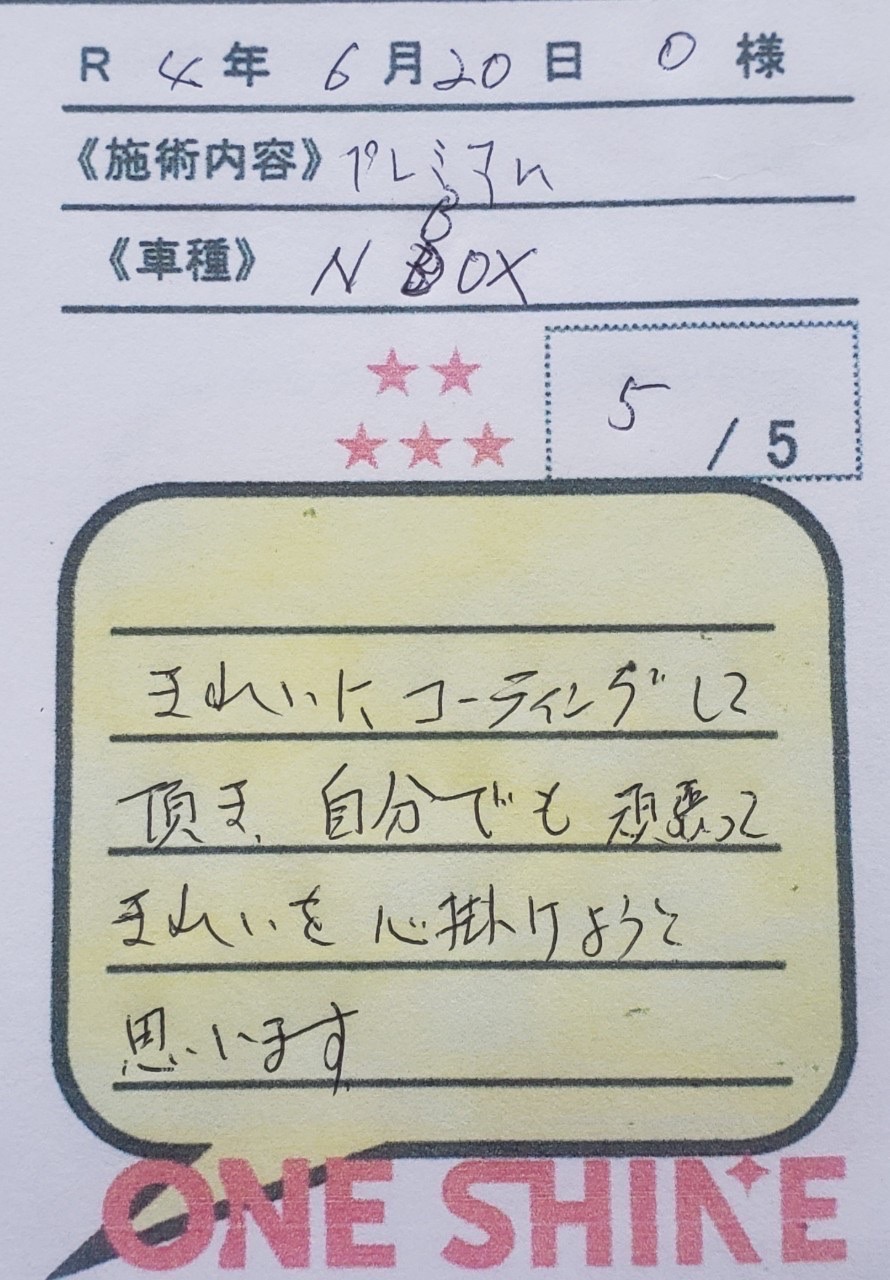 R 4年 6月20日 O様
《施術内容》プレミアム
《車種》N BOX
5/5
きれいに コーティングして
頂き、自分でも 頑張って
きれいを 心掛けようと
思います
ONE SHINE